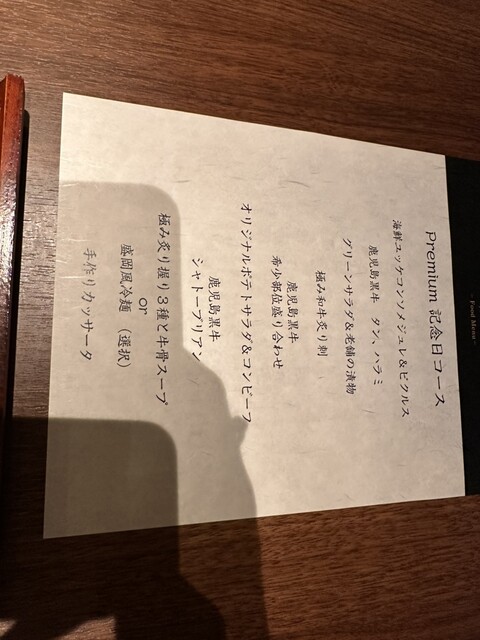 Food Menu
Premium 記念日コース
海鮮ユッケコンソメジュレ&ピクルス
鹿児島黒牛 タン、ハラミ
グリーンサラダ&老舗の漬物
極み和牛炙り刺
鹿児島黒牛
希少部位盛り合わせ
オリジナルポテトサラダ&コンビーフ
鹿児島黒牛
シャトーブリアン
極み炙り握り3種と牛骨スープ
or
盛岡風冷麺 (選択)
手作りカッサータ